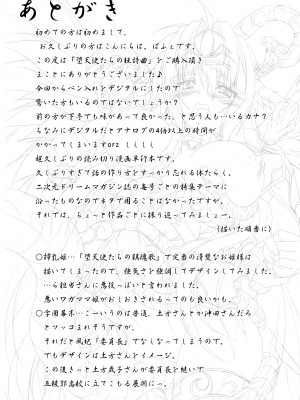 あとがき
初めての方は初めまして、
お久しぶりの方はこんにちは、ぱふぇです。
この度は「堕天使たちの狂詩曲」をご購入頂き
まことにありがとうございました♪
今回からペン入れをデジタルにしたので
驚いた方もいるのではないでしょうか？
前の方が下手でも味があって良かった、と思う人も…いるカナ？
ちなみにデジタルだとアナログの4倍以上の時間が
かかってしまいますorz しししし
超久しぶりの読み切り漫画単行本です。
久しぶりすぎて話の作り方をすっかり忘れる体たらく。
二次元ドリームマガジン誌の毎号ごとの特集テーマに
沿ったものなのでネタで困ることはなかったですが。
それでは、ちょっと作品ごとに振り返ってみましょー。
(描いた順番に)
○搾乳姫…「堕天使たちの鎮魂歌」で定番の清楚なお姫様は
描いてしまったので、強気さを強調してデザインしてみました。
…ら担当さんに悪役っぽいと言われました。
悪いワガママ姫がおしおきされるってのも良いかも。
○学園幕末…こーいうのは普通、土方さんとか沖田さんだろ
とツッコまれそうですが、
それだと風紀「委員長」でなくなってしまうので。
でもデザインは土方さんをイメージ。
この後きっと土方歳子さんが委員長を継いで
五稜郭高校に立てこもる展開に。